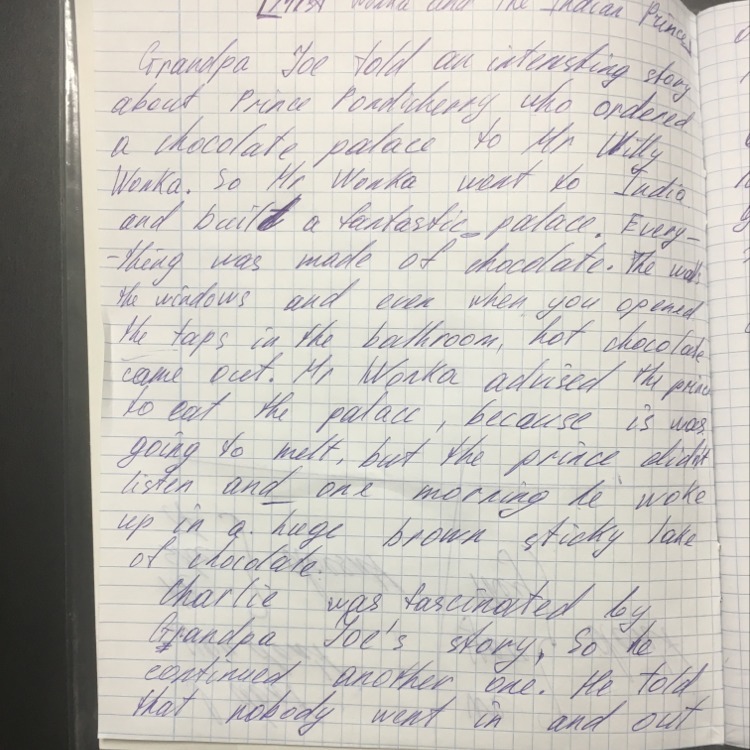 Wonka and the Indian Prince
Grandpa Joe told an interesting story
about Prince Pondicherry who ordered
a chocolate palace to Mr Willy
Wonka. So Mr Wonka went to India
and built a fantastic palace. Every-
-thing was made of chocolate. The walls
the windows and even when you opened
the taps in the bathroom, hot chocolate
came out. Mr Wonka advised the prince
to eat the palace, because is was
going to melt, but the prince didn't
listen and one morning he woke
up in a huge brown sticky lake
of chocolate.
Charlie was fascinated by
Grandpa Joe's story, So he
continued another one. He told
that nobody went in and out